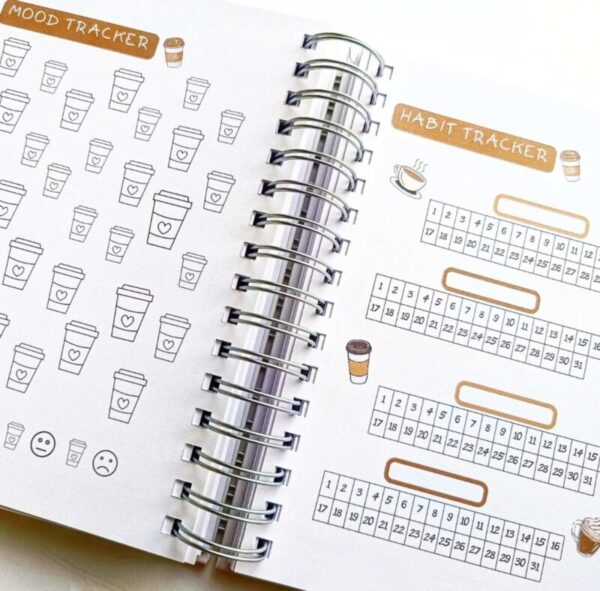 MOOD TRACKER
HABIT TRACKER
1 2 3 4 5 6 7 8 9 10 11
17 18 19 20 21 22 23 24 25 26 27 28
1 2 3 4 5 6 7 8 9 10 11 12 13 14 15
17 18 19 20 21 22 23 24 25 26 27 28 29 30 31
1 2 3 4 5 6 7 8 9 10 11 12 13 14 15
17 18 19 20 21 22 23 24 25 26 27 28 29 30 31
1 2 3 4 5 6 7 8 9 10 11 12 13 14 15 16
17 18 19 20 21 22 23 24 25 26 27 28 29 30 31